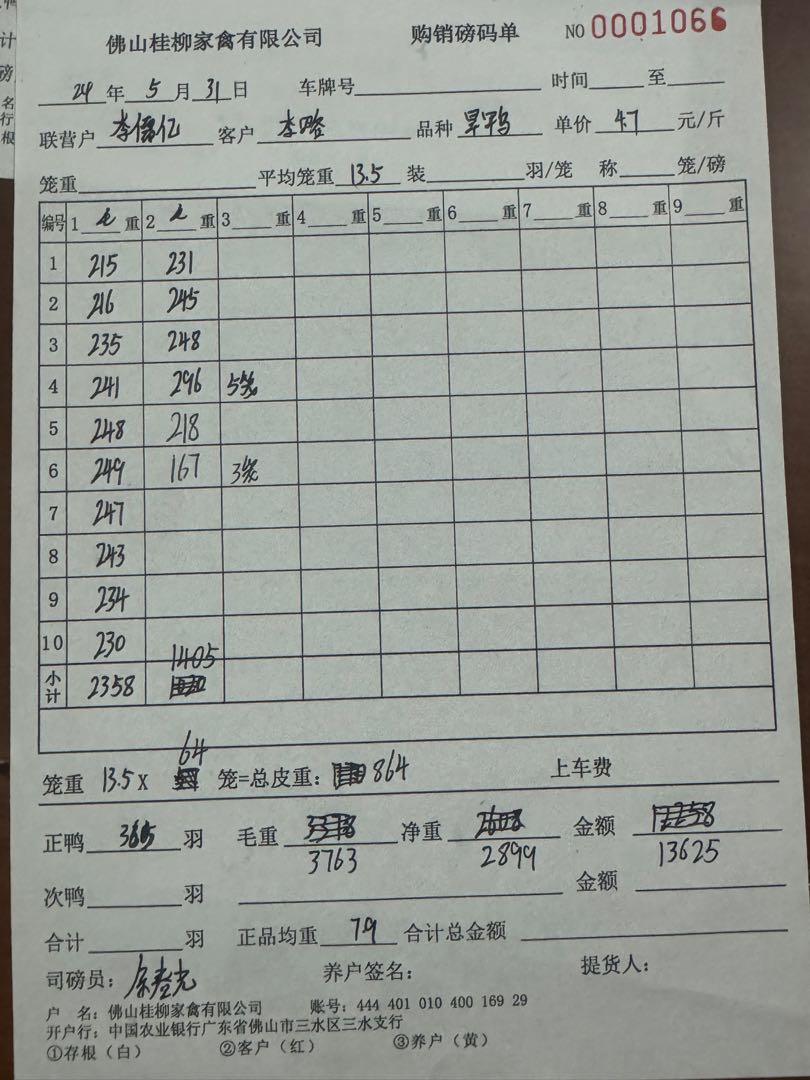 佛山桂柳家禽有限公司 购销磅码单 NO 0001066
24年5月31日 车牌号 时间 至
联营户 客户 李 品种 单价 4.7 元/斤
笼重 平均笼重 13.5 装 羽/笼 称 笼/磅
编号 1 重 2 重 3 重 4 重 5 重 6 重 7 重 8 重 9 重
1 215 231
2 216 245
3 235 248
4 241 296 5笼
5 248 218
6 249 167 3笼
7 247
8 243
9 234
10 230
1405
小计 2358
64
笼重 13.5 X 笼=总皮重: 864 上车费
正鸭 365 羽 毛重 净重 金额
3763 2899 13625
次鸭 羽 金额
合计 羽 正品均重 7.9 合计总金额
司磅员: 养户签名: 提货人:
户 名: 佛山桂柳家禽有限公司 账号: 444 401 010 400 169 29
开户行: 中国农业银行广东省佛山市三水区三水支行
①存根(白) ②客户(红) ③养户(黄)